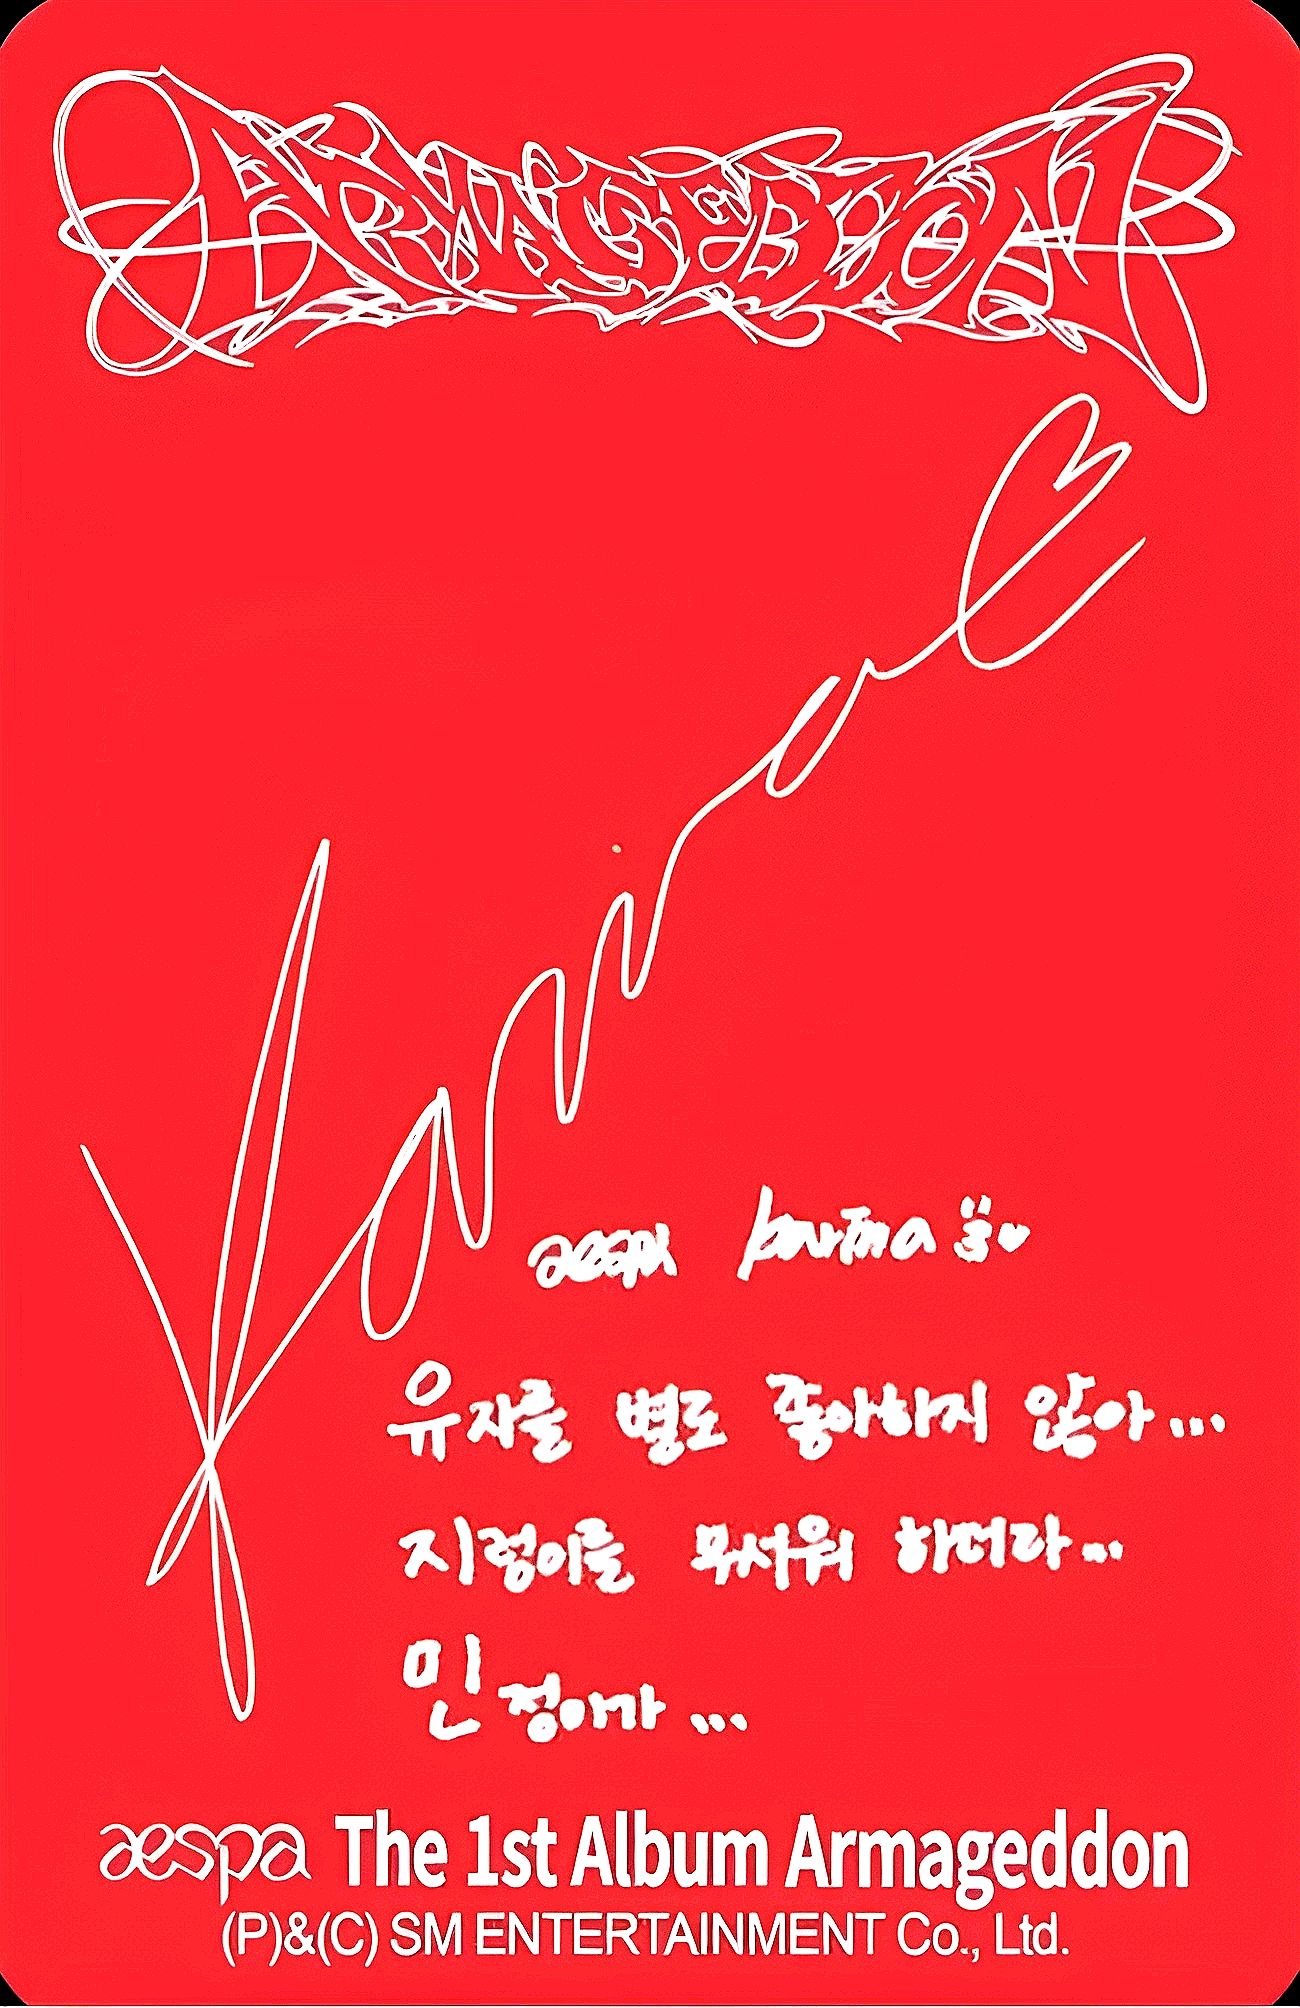 ARMAGEDDON
Karina
aespa karina
유지를 별도 좋아하지 않아...
지렁이를 무서워 하더라...
민정이가...
aespa The 1st Album Armageddon
(P)&(C) SM ENTERTAINMENT Co., Ltd.